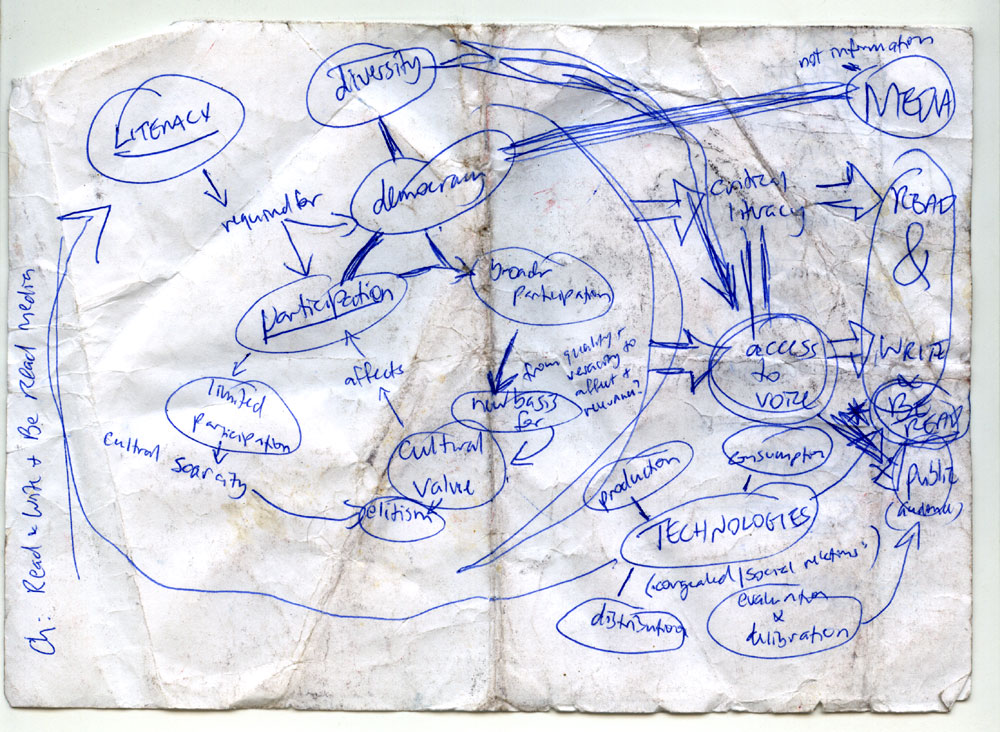 not information
MEDIA
diversity
LITERACY
democracy
required for
critical
literacy
READ
&
WRITE
&
BE
READ
public
(audience)
participation
broader
participation
affects
from quality &
veracity to
affect &
relevance?
new basis
for
access
to
voice
limited
participation
cultural scarcity
cultural
value
elitism
production
consumption
TECHNOLOGIES
(congealed / social relations?)
distribution
evaluation
&
delibration
Ch: Read & Write + Be Read media